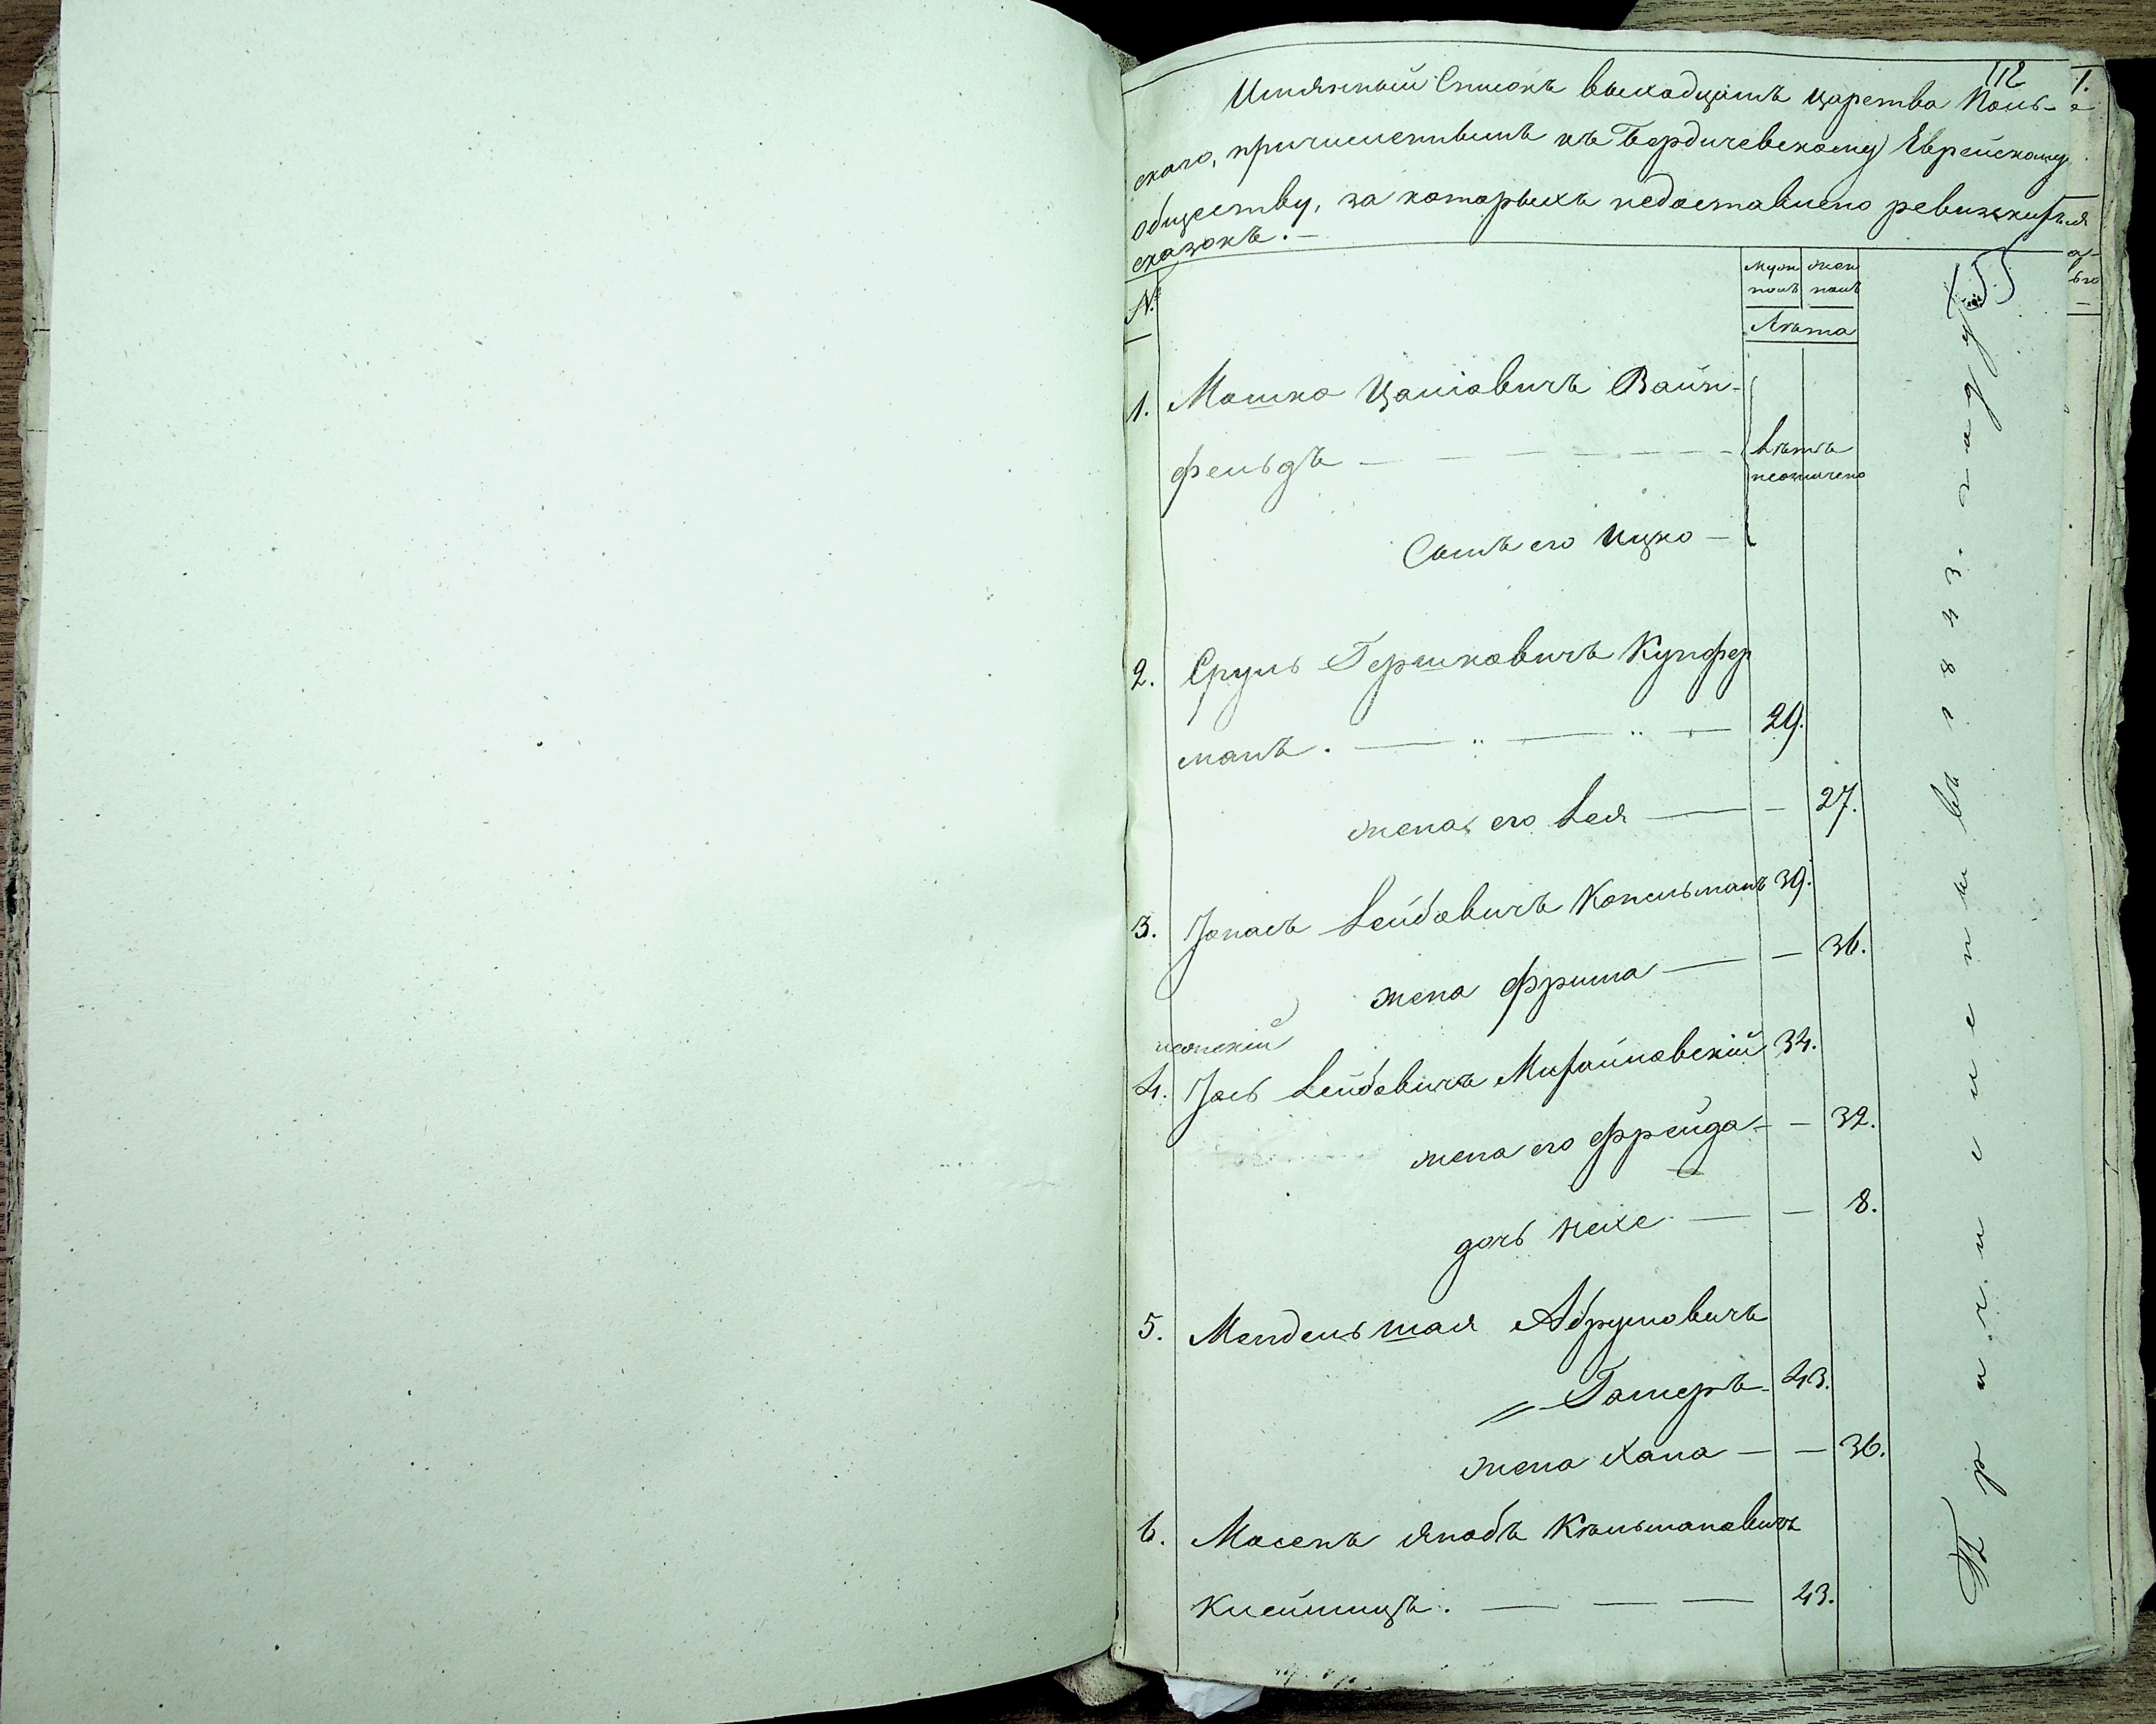 112
Имянный Списокъ выходцамъ царства Поль-
скаго, причисленнымъ къ Бердичевскому Еврейскому
обществу, за которыхъ недоставлено ревизскихъ
сказокъ. —
№
муж жен
полъ полъ
Лѣта
155
1. Мошко Цалювичъ Вайн-
фельдъ — — — — — — Лѣтъ
неозначено
Сынъ его Ицко —
2. Сруль Гершковичъ Купфер
манъ. — „ — „ — 29.
жена его Лея — — 27.
3. Іонасъ Лейбовичъ Копельманъ 39.
жена Фрима — — 36.
4. Іось Лейбовичъ Михайловскій 34.
жена его Фрейда — — 32.
дочь Нехе — — 8.
5. Мендель Шая Абрумовичъ
Гамеръ — 43.
жена Хана — — 36.
6. Мосекъ Якобъ Кѣльмановичъ
Клейницъ. — — — 43.
Причислены въ 1843. году